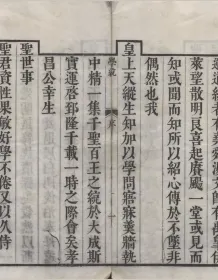 萊望散明良喜起賡颺一堂或見而
知或聞而知所以紹心傳於不墜非
偶然也我
皇上天縱生知加以學問寤寐羹牆執
學統
序
中精一集千聖百王之統於大成斯
實運啓郅隆千載一時之際會矣孝
昌公幸生
聖世事
聖君資性果敏好學不倦又以久侍